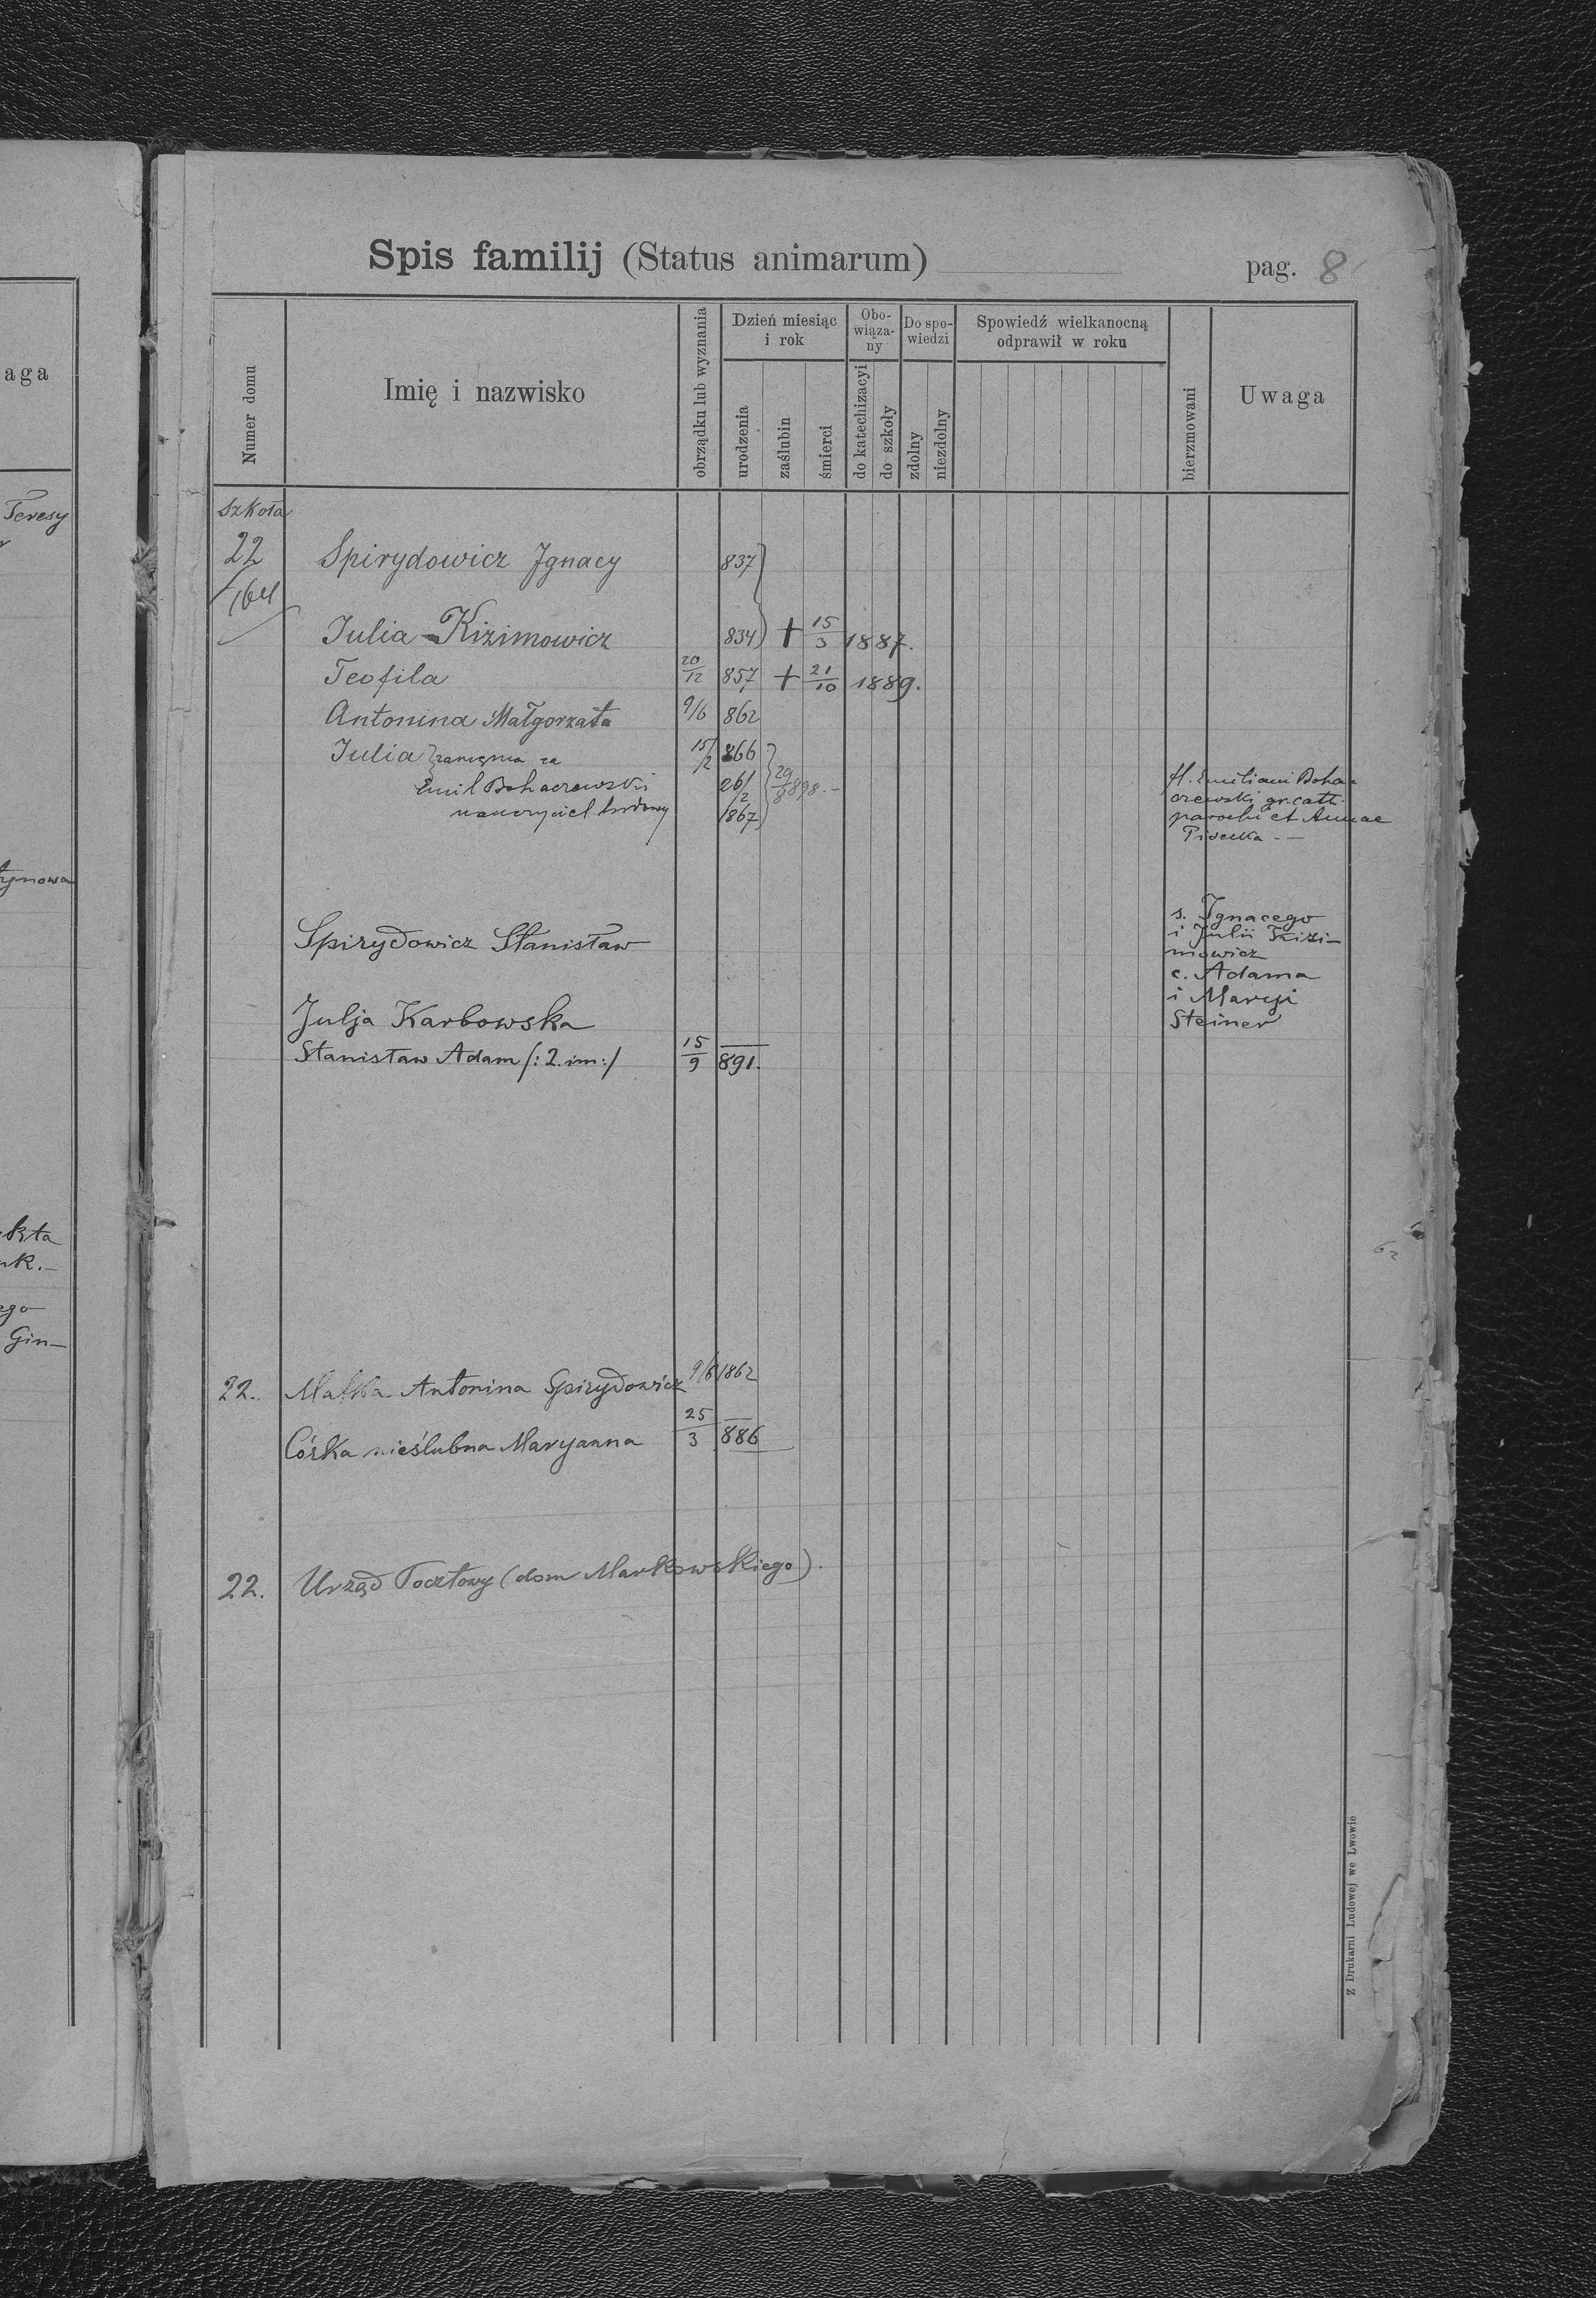 aga
Teresy
kta
nk.-
Gin-
Spis familij (Status animarum) pag. 8
Numer domu
Imię i nazwisko
obrządku lub wyznania
Dzień miesiąc i rok
urodzenia
zaślubin
śmierci
Obo-wiąza-ny
do katechizacyi
do szkoły
Do spo-wiedzi
zdolny
niezdolny
Spowiedź wielkanocną odprawił w roku
bierzmowani
Uwaga
Szkoła
22 Spirydowicz Ignacy 837
164
Julia Kizimowicz 834 + 15/3 1887.
Teofila 20/12 857 + 21/10 1889.
Antonina Małgorzata 9/6 862
Julia } zamężna za 15/2 866
Emil Bohaczewski 26/2 29/8 898.-
nauczyciel ludowy 1867
fl. Emiliani Boha-
czewski gr. cath.
parochi et Annae
s. Ignacego
i Julii Kizi-
mowicz
Spirydowicz Stanisław
c. Adama
i Maryi
Steiner
Julja Karbowska
Stanisław Adam /: 2. im :/ 15/9 891.
22. Matka Antonina Spirydowicz 9/6 1862
Córka nieślubna Maryanna 25/3 886
22. Urząd Pocztowy (dom Markowskiego).
Z Drukarni Ludowej we Lwowie